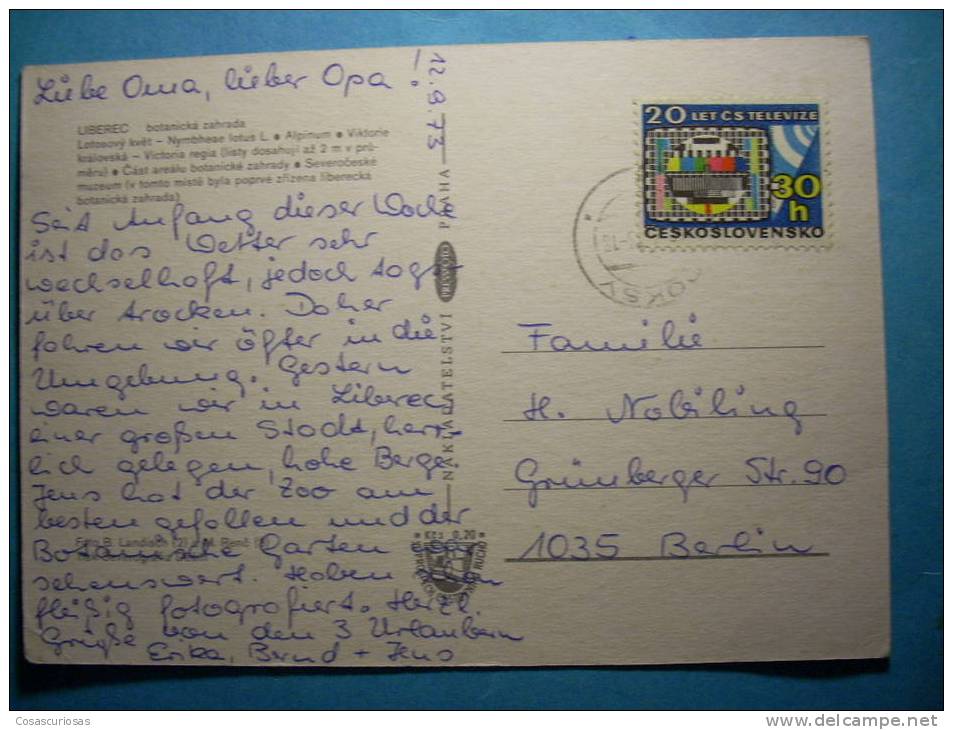 Liebe Oma, lieber Opa!
12.9.73
LIBEREC botanická zahrada
Lotosový květ – Nymbheae lotus L. ● Alpinum ● Viktorie
královská – Victoria regia (listy dosahují až 2 m v prů-
měru) ● Část areálu botanické zahrady ● Severočeské
muzeum (v tomto místě byla poprvé zřízena liberecká
botanická zahrada)
Seit Anfang dieser Woche
ist das Wetter sehr
wechselhaft, jedoch tags-
über trocken. Daher
fahren wir öfter in die
Umgebung. Gestern
waren wir in Liberec
einer großen Stadt, herr-
lich gelegen, hohe Berge
Jens hat der Zoo am
besten gefallen und der
Botanische Garten
sehenswert. Haben
fleißig fotografiert. Herzl.
Grüße von den 3 Urlaubern
Erika, Bernd + Jens
NAKLADATELSTVÍ PRESSFOTO PRAHA
Kčs 0,20
20 LET ČS TELEVIZE
30
h
ČESKOSLOVENSKO
Familie
H. Nobiling
Grünberger Str. 90
1035 Berlin
Cosascuriosas
www.delcampe.net